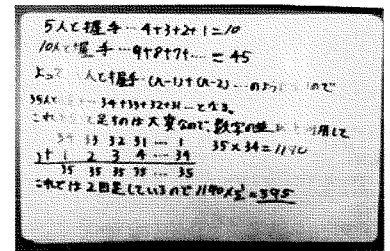 5人と握手…4+3+2+1=10
10人と握手…9+8+7+…=45
よって 人と握手(n-1)+(n-2)…の ので
35人 …34+33+32+31…となる。
これ と足すのは大変なので、数字の並 用して
34 33 32 31 … 1
+ 1 2 3 4 … 34 35×34=1190
35 35 35 35 … 35
これでは2回足しているので1190× =595